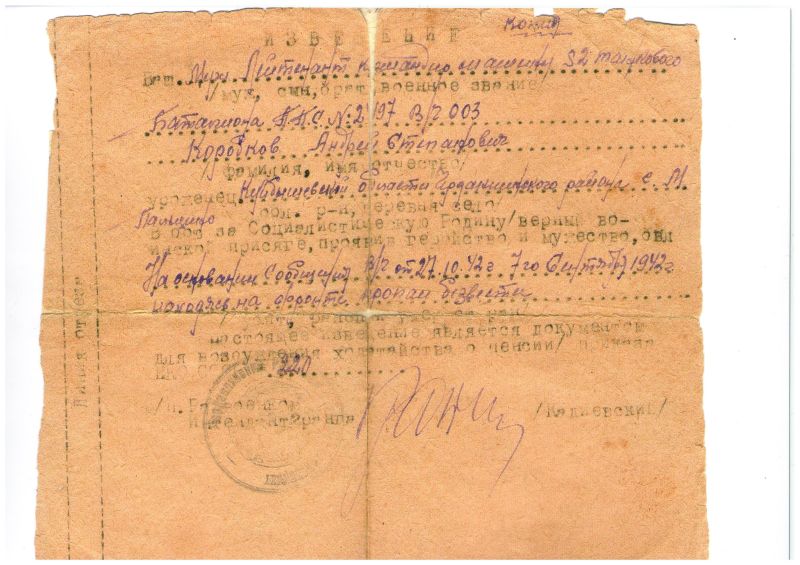 Копия
ИЗВЕЩЕНИЕ
Ваш Муж Лейтенант командир машины 52 танкового
муж, сын, брат, военное звание/
Батальона П.П.С №: 2197 В/г 003
Коробков Андрей Степанович
фамилия, имя отчество/
уроженец Куйбышевской области Чердаклинского района с. М
Пальцино обл. р-н, деревня село/
В бою за Социалистическую Родину/верный во-
инской присяге, проявив геройство и мужество,
На основании Сообщения В/г от 27.10.42г 7го Сентября 1942г
находясь на фронте пропал безвести
настоящее извещение является документом
для возбуждения ходатайства о пенсии/ приказ
220
интендант 2ранга /Кадиевский/
Линия отреза